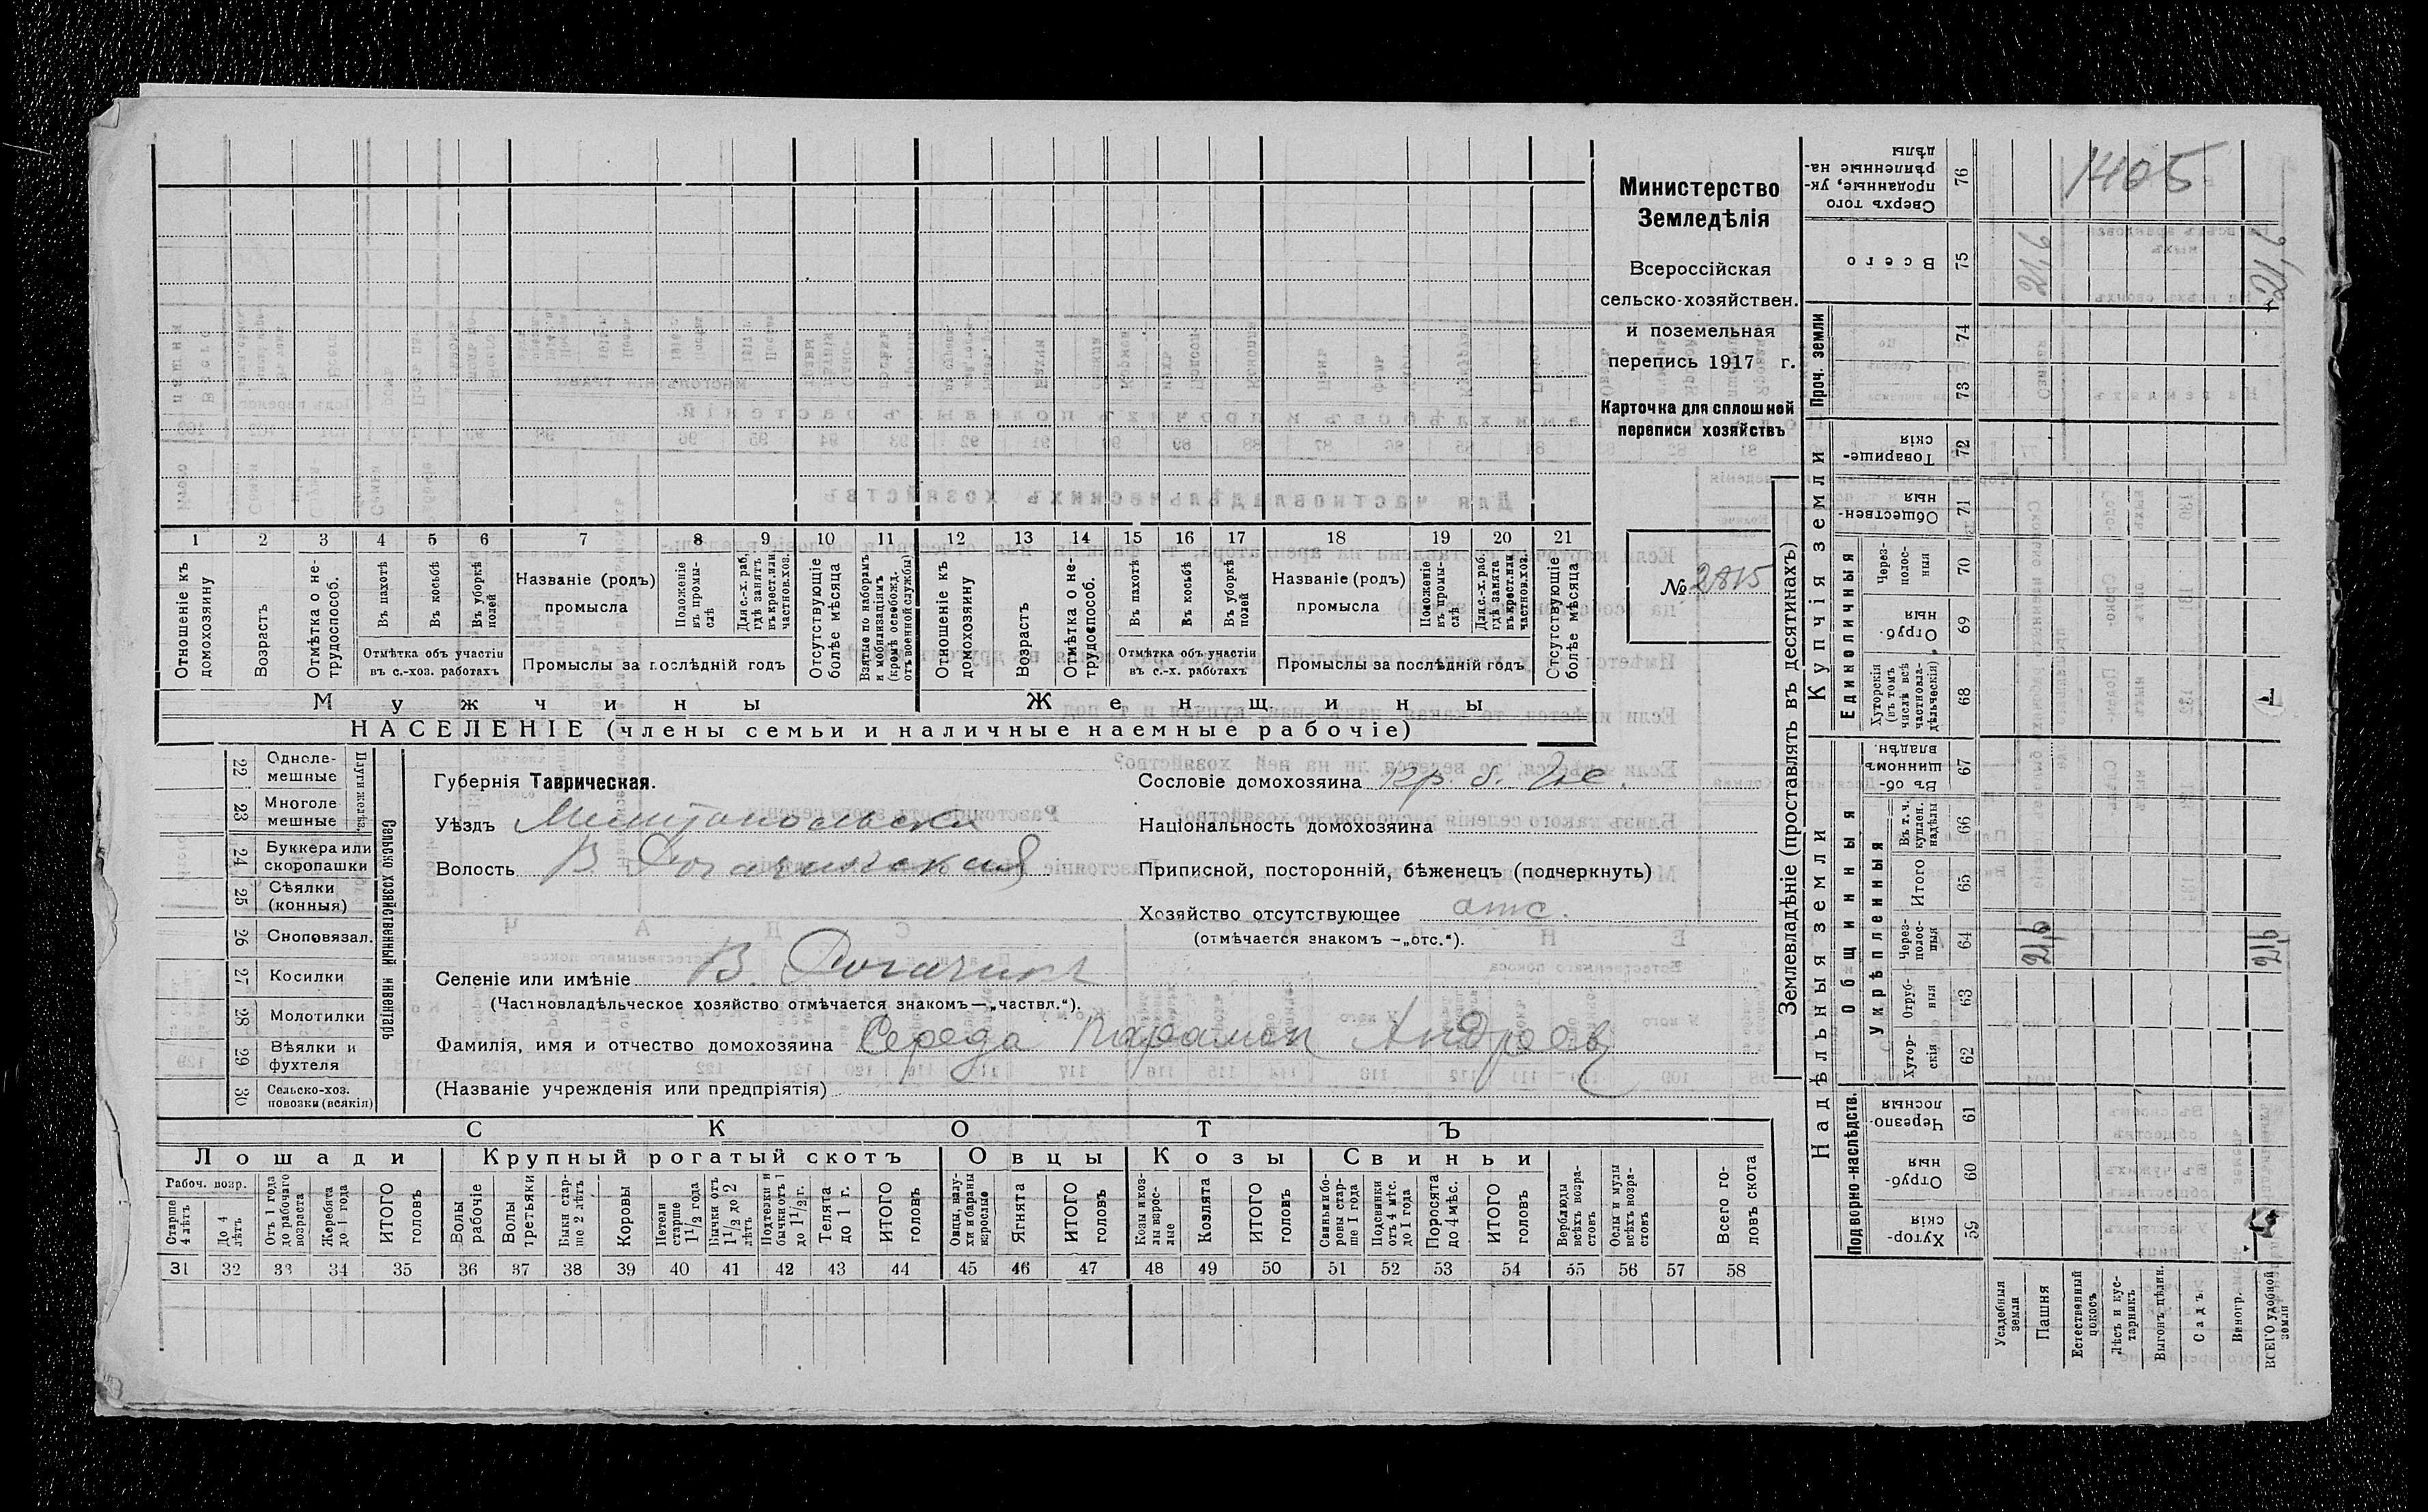 Министерство
Земледѣлія
Всероссійская
сельско-хозяйствен.
и поземельная
перепись 1917 г.
Карточка для сплошной
переписи хозяйствъ
№ 2815
1405
1 2 3 4 5 6 7 8 9 10 11 12 13 14 15 16 17 18 19 20 21
Отношеніе къ домохозяину
Возрастъ
Отмѣтка о нетрудоспособ.
Въ пахотѣ
Въ косьбѣ
Въ уборкѣ полей
Отмѣтка объ участіи
въ с.-хоз. работахъ
Названіе (родъ)
промысла
Положеніе въ промыслѣ
Для с.-х. раб. гдѣ занятъ въ крест. или частнов. хоз.
Промыслы за послѣдній годъ
Отсутствующіе болѣе мѣсяца
Взятые по наборамъ и мобилизаціямъ (кромѣ освобожд. отъ военной службы)
Отношеніе къ домохозяину
Возрастъ
Отмѣтка о нетрудоспособ.
Въ пахотѣ
Въ косьбѣ
Въ уборкѣ полей
Отмѣтка объ участіи
въ с.-х. работахъ
Названіе (родъ)
промысла
Положеніе въ промыслѣ
Для с.-х. раб. гдѣ занята въ крест. или частнов. хоз.
Промыслы за послѣдній годъ
Отсутствующіе болѣе мѣсяца
Мужчины Женщины
НАСЕЛЕНІЕ (члены семьи и наличные наемные рабочіе)
22 Однолемешные
23 Многолемешные
Плуги желѣз.
24 Буккера или скоропашки
25 Сѣялки (конныя)
26 Сноповязал.
27 Косилки
28 Молотилки
29 Вѣялки и фухтеля
30 Сельско-хоз. повозки (всякія)
Сельско хозяйственный инвентарь
Губернія Таврическая.
Уѣздъ Мелитопольскій
Волость В Рогачикская
Селеніе или имѣніе В. Рогачикъ
(Частновладѣльческое хозяйство отмѣчается знакомъ—„частвл.“).
Фамилія, имя и отчество домохозяина Середа Парамон Андреев
(Названіе учрежденія или предпріятія)
Сословіе домохозяина кр.
Національность домохозяина
Приписной, посторонній, бѣженецъ (подчеркнуть)
Хозяйство отсутствующее отс.
(отмѣчается знакомъ —„отс.“).
СКОТЪ
Лошади Крупный рогатый скотъ Овцы Козы Свиньи
Рабоч. возр.
Старше 4 лѣтъ
До 4 лѣтъ
Отъ 1 года до рабочаго возраста
Жеребята до 1 года
ИТОГО головъ
Волы рабочіе
Волы третьяки
Быки старше 2 лѣтъ
Коровы
Нетели старше 1 1/2 года
Бычки отъ 1 1/2 до 2 лѣтъ
Подтелки и бычки отъ 1 до 1 1/2 г.
Телята до 1 г.
ИТОГО головъ
Овцы, валухи и бараны взрослые
Ягнята
ИТОГО головъ
Козы и козлы взрослые
Козлята
ИТОГО головъ
Свиньи и боровы старше 1 года
Подсвинки отъ 4 мѣс. до 1 года
Поросята до 4 мѣс.
ИТОГО головъ
Верблюды всѣхъ возрастовъ
Ослы и мулы всѣхъ возрастовъ
Всего головъ скота
31 32 33 34 35 36 37 38 39 40 41 42 43 44 45 46 47 48 49 50 51 52 53 54 55 56 57 58
Землевладѣніе (проставлять въ десятинахъ)
Надѣльныя земли
Купчія земли
Проч. земли
Подворно-наслѣдств.
Общинныя
Укрѣпленныя
Единоличныя
Хуторскія 59
Отрубныя 60
Черезполосныя 61
Хуторскія 62
Отрубныя 63
Черезполосныя 64
Итого 65
Въ т. ч. куплен. надѣлы 66
Въ общинномъ владѣн. 67
Хуторскія (въ томъ числѣ всѣ частновладѣльческія) 68
Отрубныя 69
Черезполосныя 70
Общественныя 71
Товарищескія 72
73
74
Всего 75
Сверхъ того проданные, укрѣпленные надѣлы 76
Усадебныя земли
Пашня
Естественный покосъ
Лѣсъ и кустарникъ
Выгонъ цѣлин.
Садъ
Виногр.
ВСЕГО удобной земли